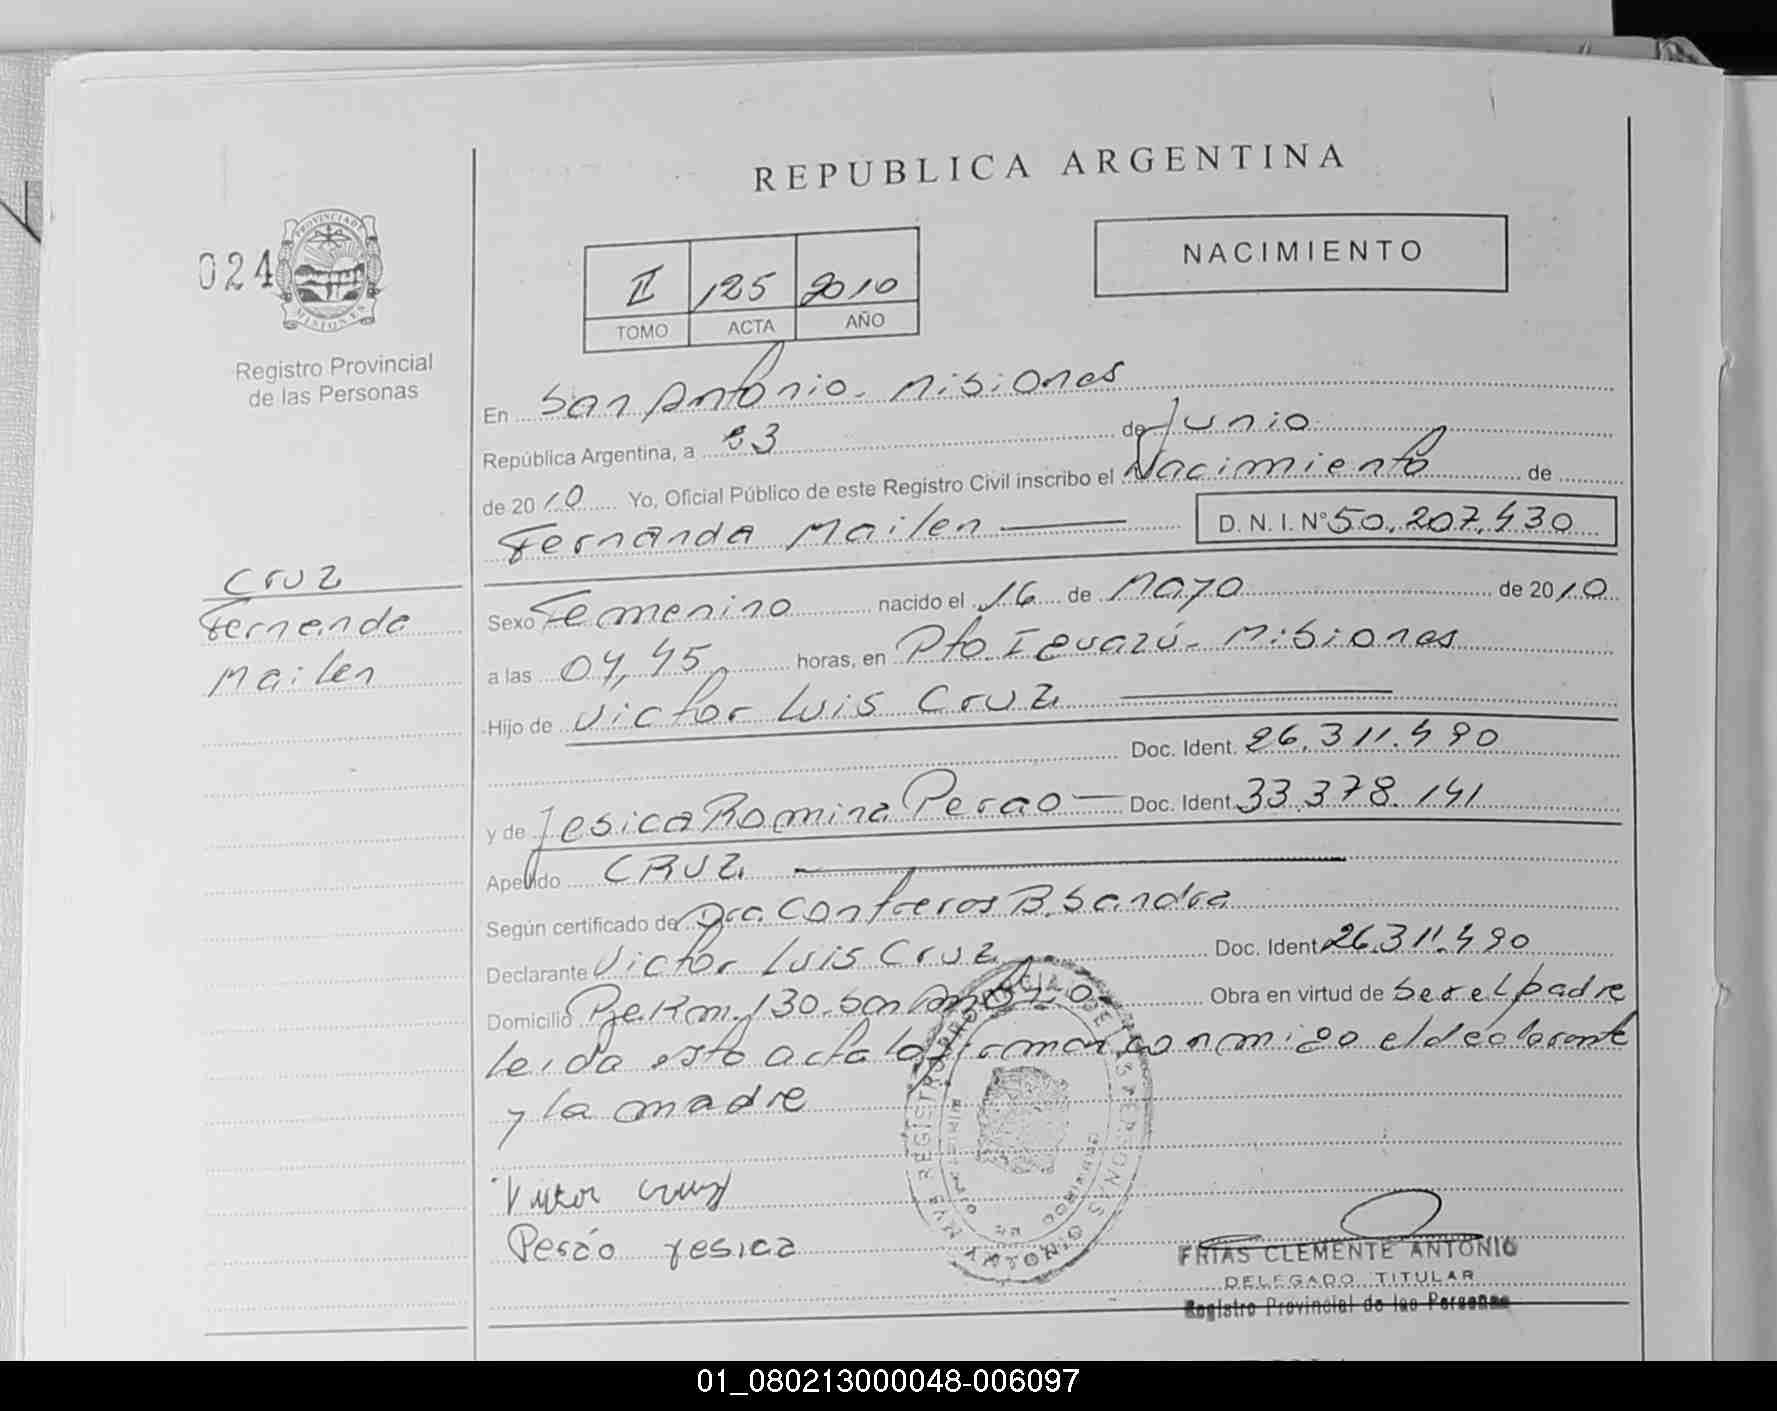 REPUBLICA ARGENTINA
024
PROVINCIA DE MISIONES
Registro Provincial
de las Personas
NACIMIENTO
II 125 2010
TOMO ACTA AÑO
En San Antonio - Misiones
República Argentina, a 03 de Junio
de 2010 Yo, Oficial Público de este Registro Civil inscribo el Nacimiento de
Fernanda Mailen D. N. I. N° 50.207.430
Cruz
Fernanda
Mailen
Sexo Femenino nacido el 16 de Mayo de 2010
a las 04,45 horas, en Pto. Iguazú - Misiones
Hijo de Victor Luis Cruz
Doc. Ident. 26.311.490
y de Jesica Romina Perao Doc. Ident. 33.378.141
Apellido CRUZ
Según certificado de Dra. Contreras B. Sandra
Declarante Victor Luis Cruz Doc. Ident. 26.311.490
Domicilio Pje. Km. 130 - San Antonio - Obra en virtud de ser el padre
leída esta acta la firman conmigo el declarante
y la madre
Victor Cruz
Perao Yesica
FRIAS CLEMENTE ANTONIO
DELEGADO TITULAR
Registro Provincial de las Personas
01_080213000048-006097